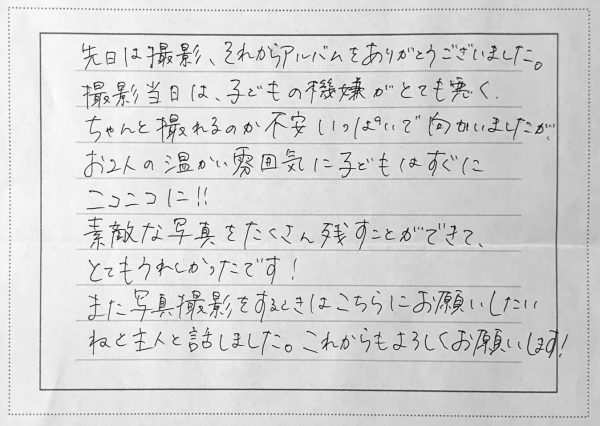 先日は撮影、それからアルバムをありがとうございました。
撮影当日は、子どもの機嫌がとても悪く、
ちゃんと撮れるのか不安いっぱいで向かいましたが、
お2人の温かい雰囲気に子どもはすぐに
ニコニコに!!
素敵な写真をたくさん残すことができて、
とてもうれしかったです!
また写真撮影をするときはこちらにお願いしたい
ねと主人と話しました。これからもよろしくお願いします!